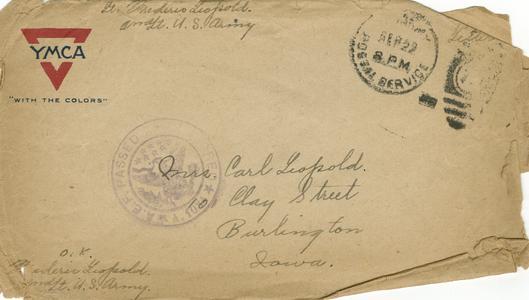 G. Frederic Leopold.
2nd Lt. U. S. Army
YMCA
"WITH THE COLORS"
SEP 22
8 P.M.
SERVICE
PASSED
A.E.F.
Mrs. Carl Leopold.
Clay Street
Burlington
Iowa.
O.K.
Frederic Leopold.
2nd Lt. U.S. Army.